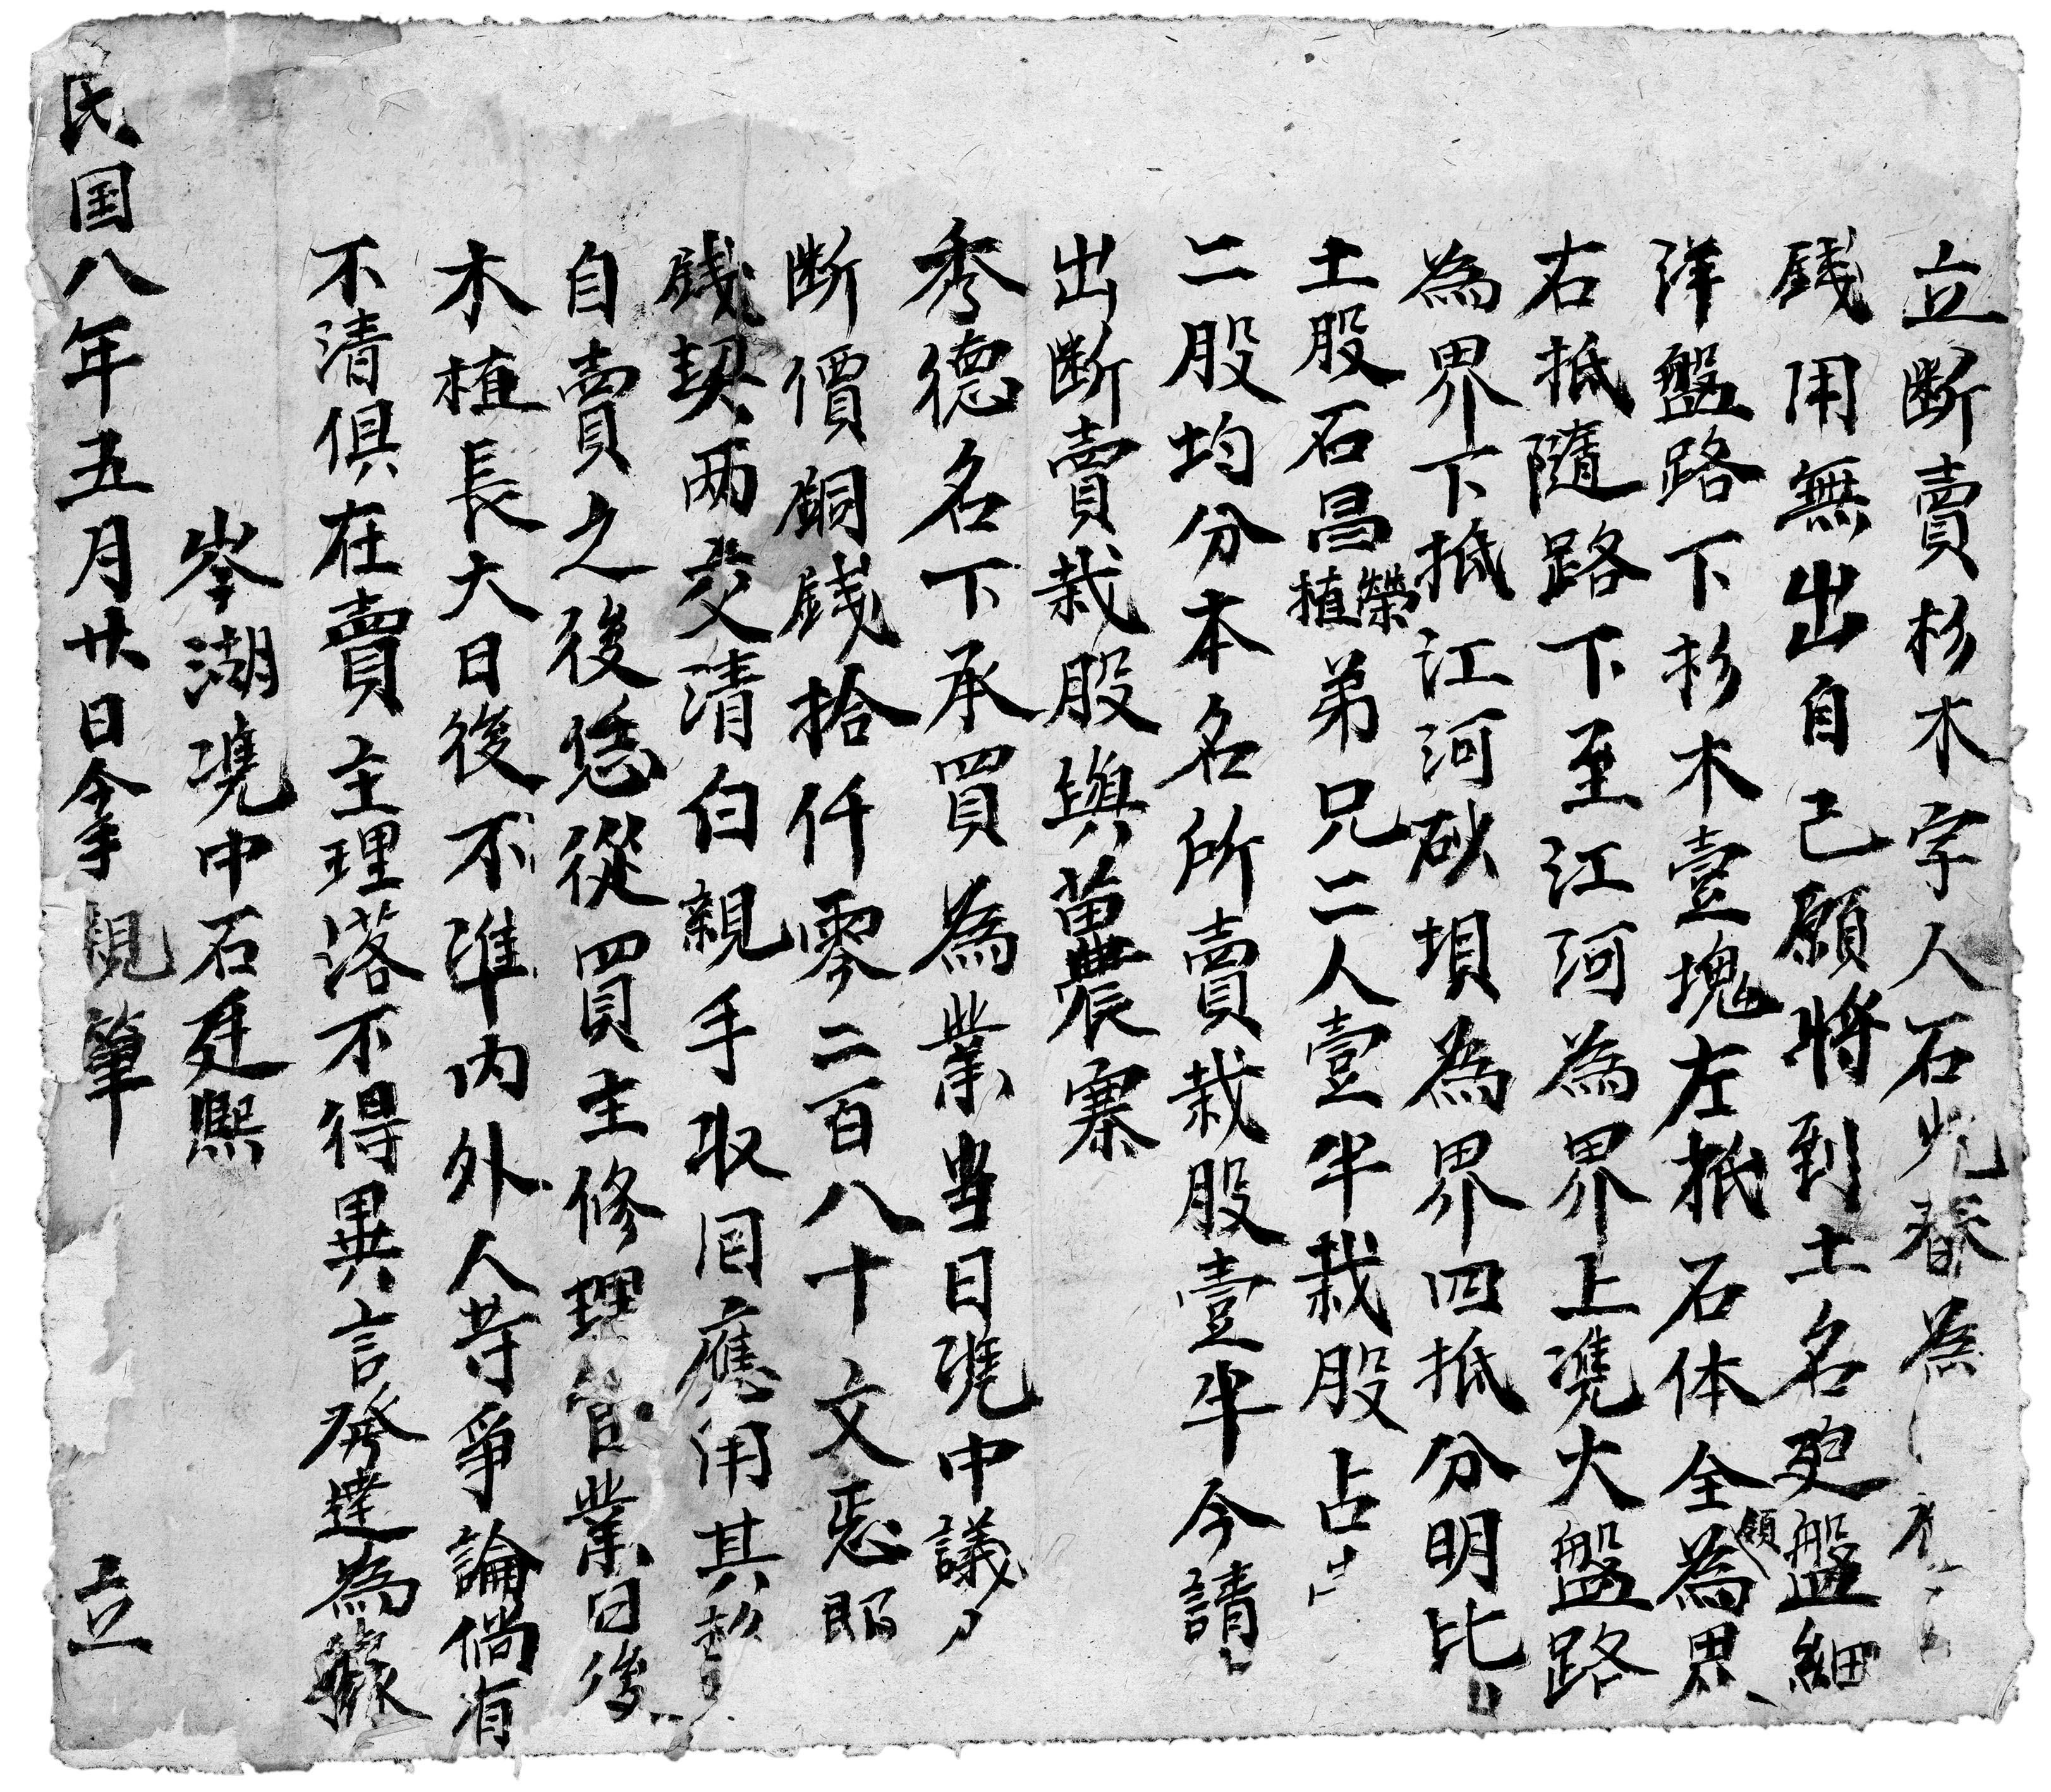 立断賣杉木字人石光春為
錢用無出自己願將到土名
盤細
洋盤路下杉木壹塊左抵石体全為界
右抵隨路下至江河為界上凴大盤路
為界下抵江河砂垻為界四抵分明比
土股石昌榮植弟兄二人壹半栽股占
二股均分本名所賣栽股壹半今請
出断賣栽股與苗農寨
秀德名下承買為業当日凴中議
断價銅錢拾仟零二百八十文
錢契两交清白親手取回應用其
自賣之後恁從買主修理管業日後
木植長大日後不準内外人等爭論倘有
不清俱在賣主理落不得異言發達為據
岑湖凴中石廷熙
民国八年五月廿日 親筆 立